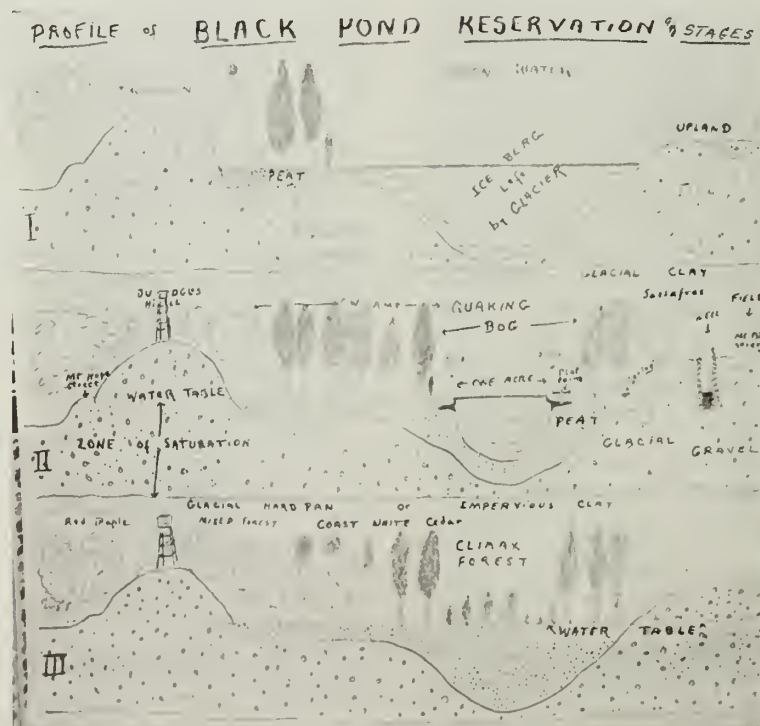 PROFILE of BLACK POND RESERVATION in STAGES
WATER
UPLAND
PEAT
ICE BERG
Left
by GLACIER
I
GLACIAL CLAY
JUDGES
HILL
Sassafras
FIELD
WELL
SWAMP
QUAKING
BOG
MT HOPE
Street
ONE ACRE
WATER TABLE
PEAT
II
ZONE of SATURATION
GLACIAL GRAVEL
GLACIAL HARD PAN or IMPERVIOUS CLAY
Red Maple
MIXED FOREST
COAST WHITE Cedar
CLIMAX
FOREST
WATER TABLE
III